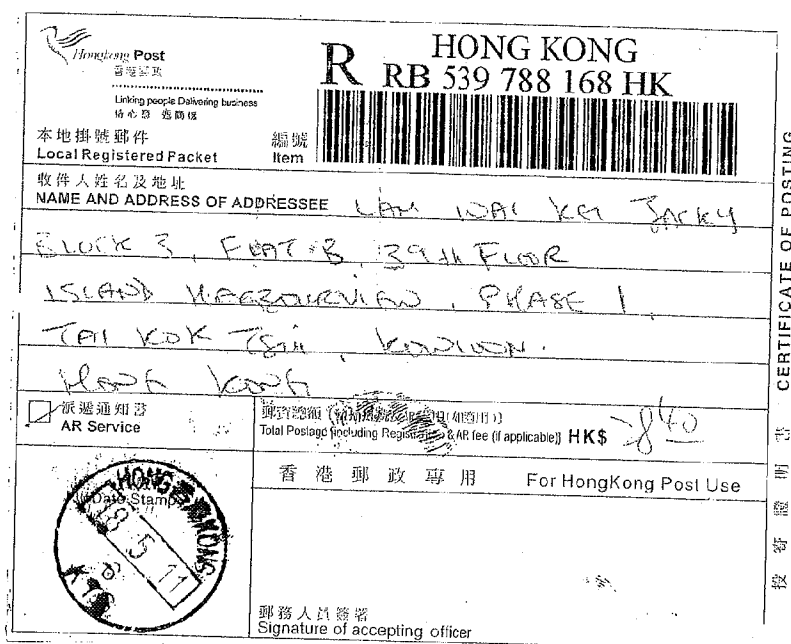 Hongkong Post
香港郵政
Linking people Delivering business
R
HONG KONG
RB 539 788 168 HK
本地掛號郵件
Local Registered Packet
編號
Item
收件人姓名及地址
NAME AND ADDRESS OF ADDRESSEE LAM WAI KEI JACKY
BLOCK 3, FLAT B, 39th FLOOR
ISLAND HARBOURVIEW, PHASE 1,
TAI KOK TSUI, KOWLOON.
HONG KONG
派遞通知書
AR Service
Total Postage (including Registration & AR fee (if applicable)) HK$ 840
香港郵政專用 For HongKong Post Use
Date Stamp
HONG 香港 KONG
18 5 11
郵務人員簽署
Signature of accepting officer
CERTIFICATE OF POSTING
投寄證明書